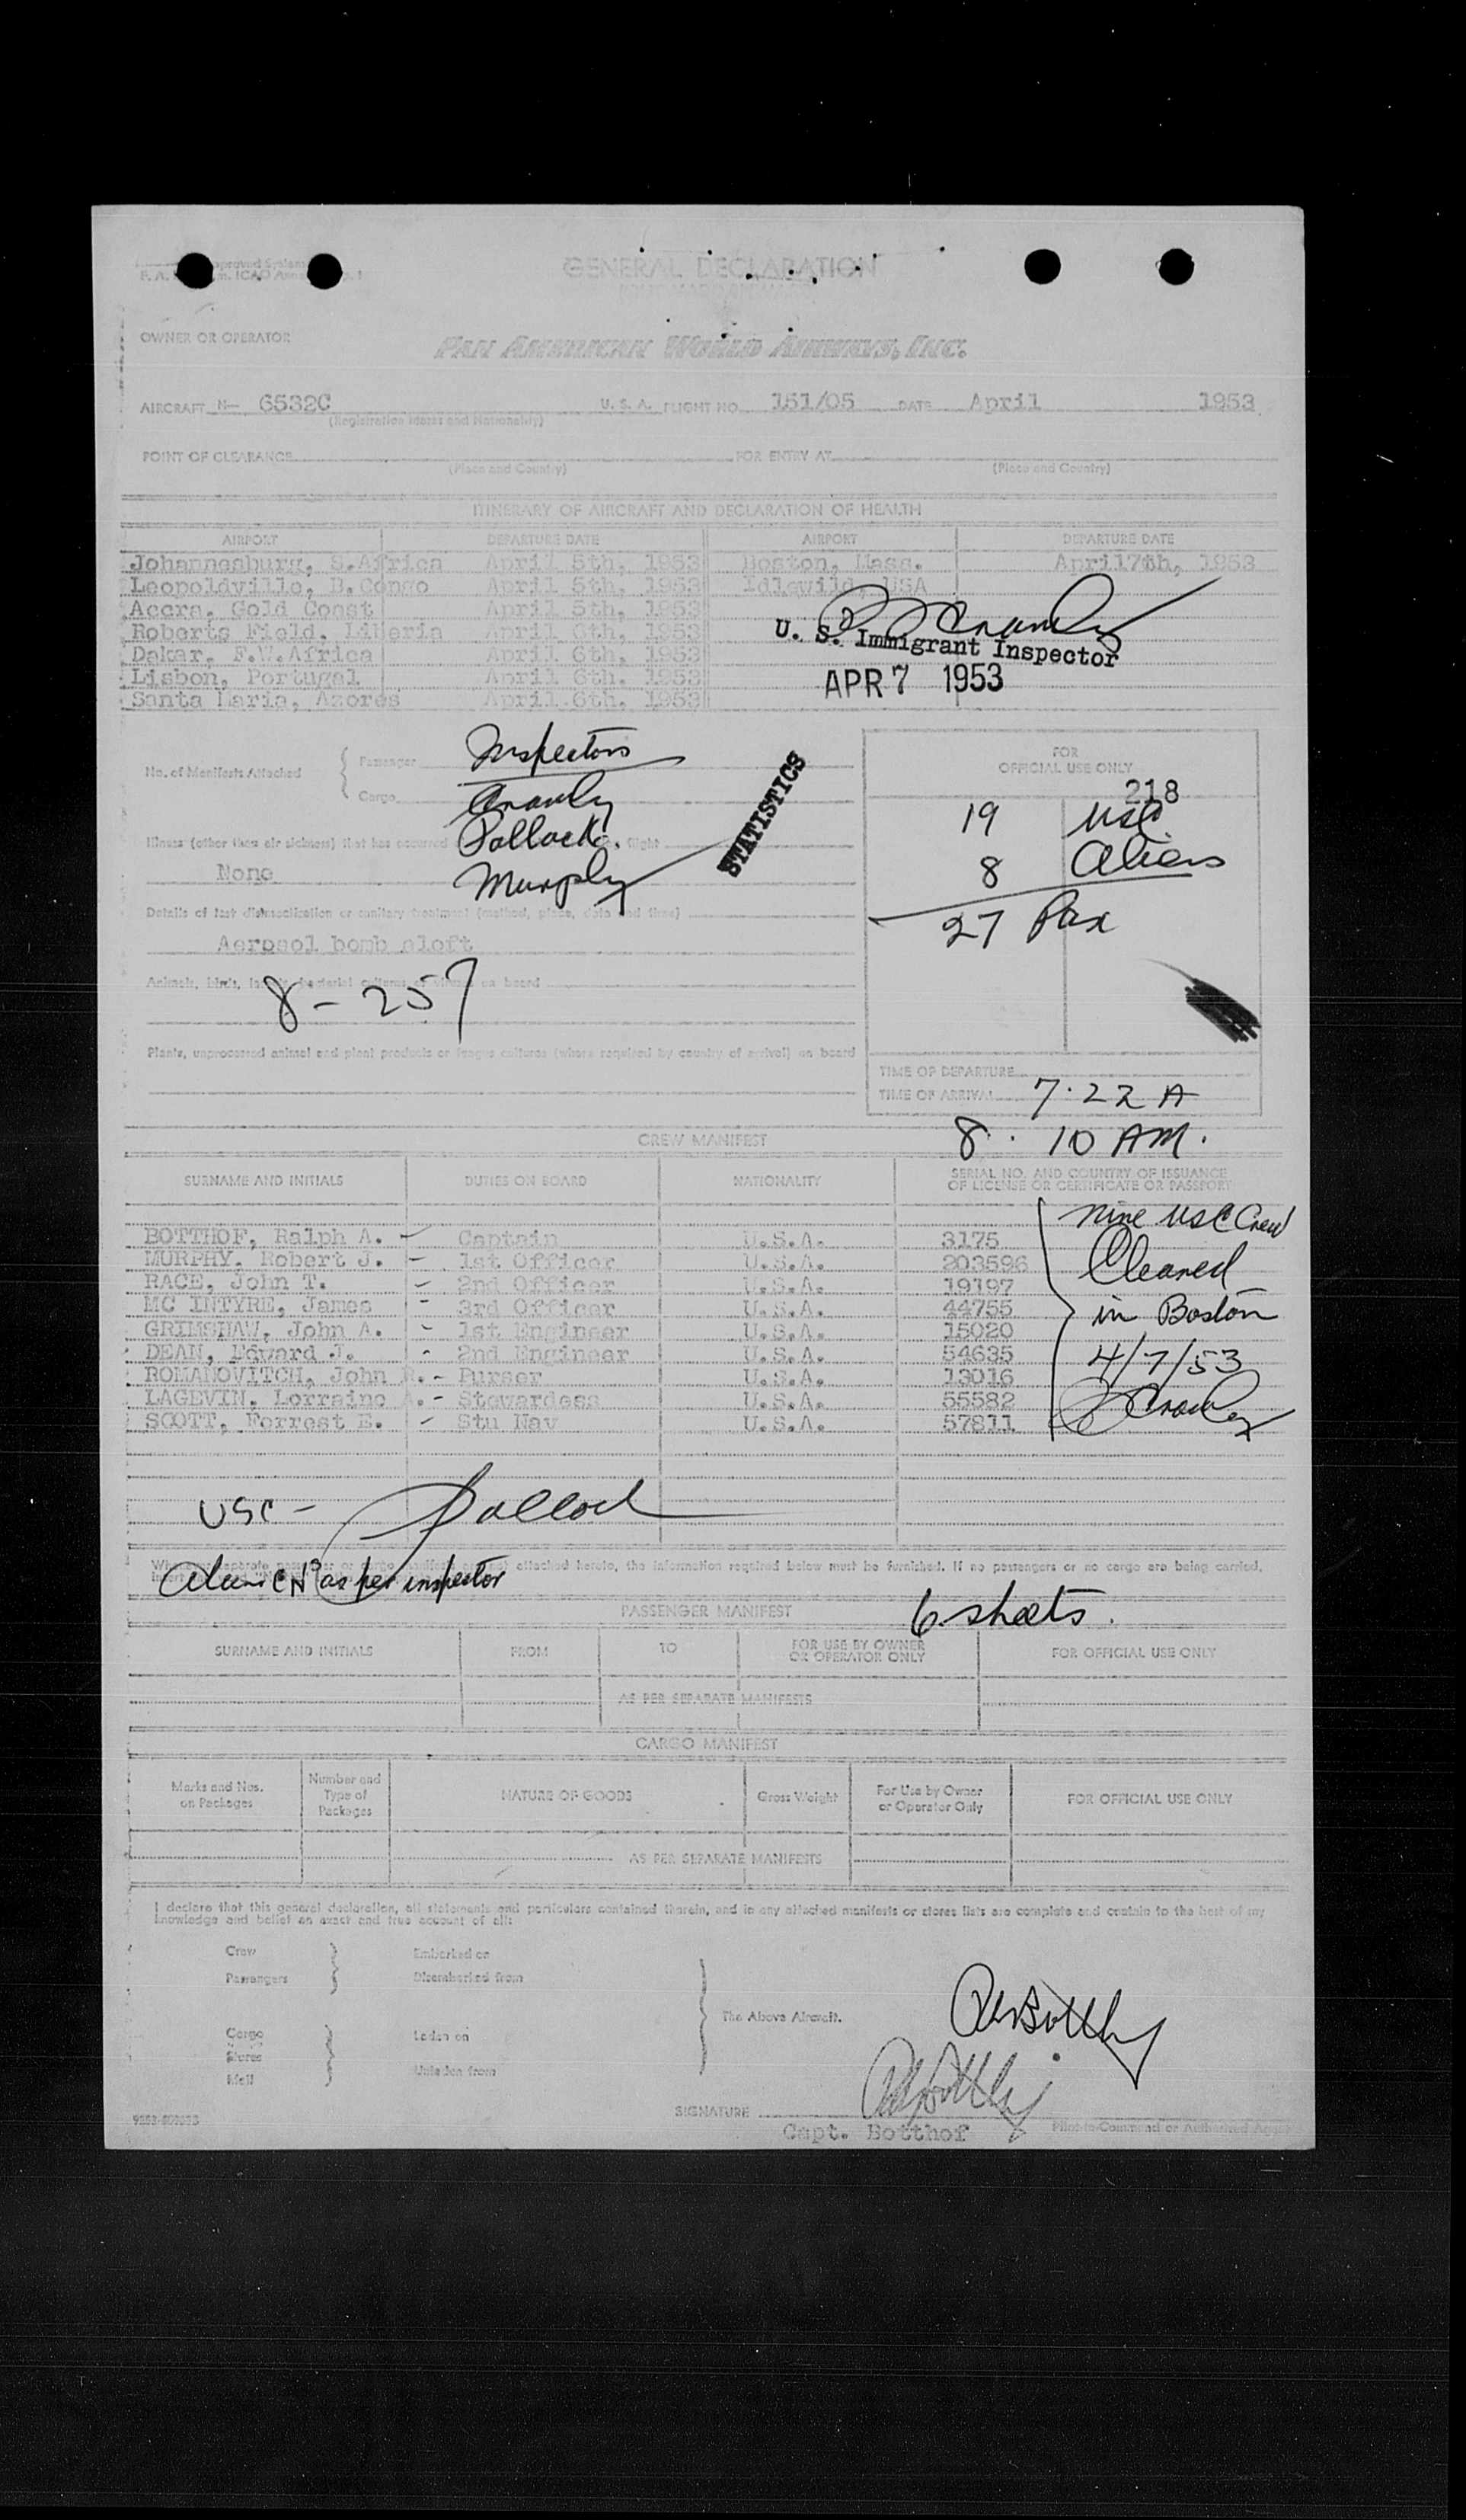 GENERAL DECLARATION
OWNER OR OPERATOR
PAN AMERICAN WORLD AIRWAYS, INC.
AIRCRAFT N- 6532C U. S. A. FLIGHT NO. 151/05 DATE April 1953
(Registration Marks and Nationality)
POINT OF CLEARANCE FOR ENTRY AT
(Place and Country) (Place and Country)
ITINERARY OF AIRCRAFT AND DECLARATION OF HEALTH
AIRPORT DEPARTURE DATE AIRPORT DEPARTURE DATE
Johannesburg, S.Africa April 5th, 1953 Boston, Mass. April7th, 1953
Leopoldville, B.Congo April 5th, 1953 Idlewild, USA
Accra, Gold Coast April 5th, 1953
Roberts Field, Liberia April 6th, 1953
Dakar, F.W.Africa April 6th, 1953
Lisbon, Portugal April 6th, 1953
Santa Maria, Azores April 6th, 1953
U. S. Immigrant Inspector
APR 7 1953
No. of Manifests Attached
Passenger
Cargo
Inspectors
Pollock
Murphy
STATISTICS
Illness (other than air sickness) that has occurred flight
None
Details of last disinsectization or sanitary treatment (method, place, date and time)
Aerosol bomb aloft
Animals, birds, bacterial cultures on board
8-257
Plants, unprocessed animal and plant products or fungus cultures (where required by country of arrival) on board
FOR
OFFICIAL USE ONLY
218
19 USC
8 Aliens
27 Pax
TIME OF DEPARTURE
TIME OF ARRIVAL 7:22 A
8:10 AM.
CREW MANIFEST
SURNAME AND INITIALS DUTIES ON BOARD NATIONALITY SERIAL NO. AND COUNTRY OF ISSUANCE OF LICENSE OR CERTIFICATE OR PASSPORT
BOTTHOF, Ralph A. - Captain U.S.A. 3175
MURPHY, Robert J. - 1st Officer U.S.A. 203596
RACE, John T. - 2nd Officer U.S.A. 19197
MC INTYRE, James - 3rd Officer U.S.A. 44755
GRIMSHAW, John A. - 1st Engineer U.S.A. 15020
DEAN, Edward J. - 2nd Engineer U.S.A. 54635
ROMANOVITCH, John R. - Purser U.S.A. 13016
LAGEVIN, Lorraine A. - Stewardess U.S.A. 55582
SCOTT, Forrest E. - Stu Nav U.S.A. 57811
Nine USC Crew
Cleared
in Boston
4/7/53
USC - Pollock
as per inspector
attached hereto, the information required below must be furnished. If no passengers or no cargo are being carried,
6 sheets.
PASSENGER MANIFEST
SURNAME AND INITIALS FROM TO FOR USE BY OWNER OR OPERATOR ONLY FOR OFFICIAL USE ONLY
AS PER SEPARATE MANIFESTS
CARGO MANIFEST
Marks and Nos. on Packages Number and Type of Packages NATURE OF GOODS Gross Weight For Use by Owner or Operator Only FOR OFFICIAL USE ONLY
AS PER SEPARATE MANIFESTS
I declare that this general declaration, all statements and particulars contained therein, and in any attached manifests or stores lists are complete and contain to the best of my
knowledge and belief an exact and true account of all:
Crew Embarked on
Passengers Disembarked from
The Above Aircraft.
Cargo Laden on
Stores
Mail Unladen from
SIGNATURE
Capt. Botthof
Pilot-in-Command or Authorized Agent